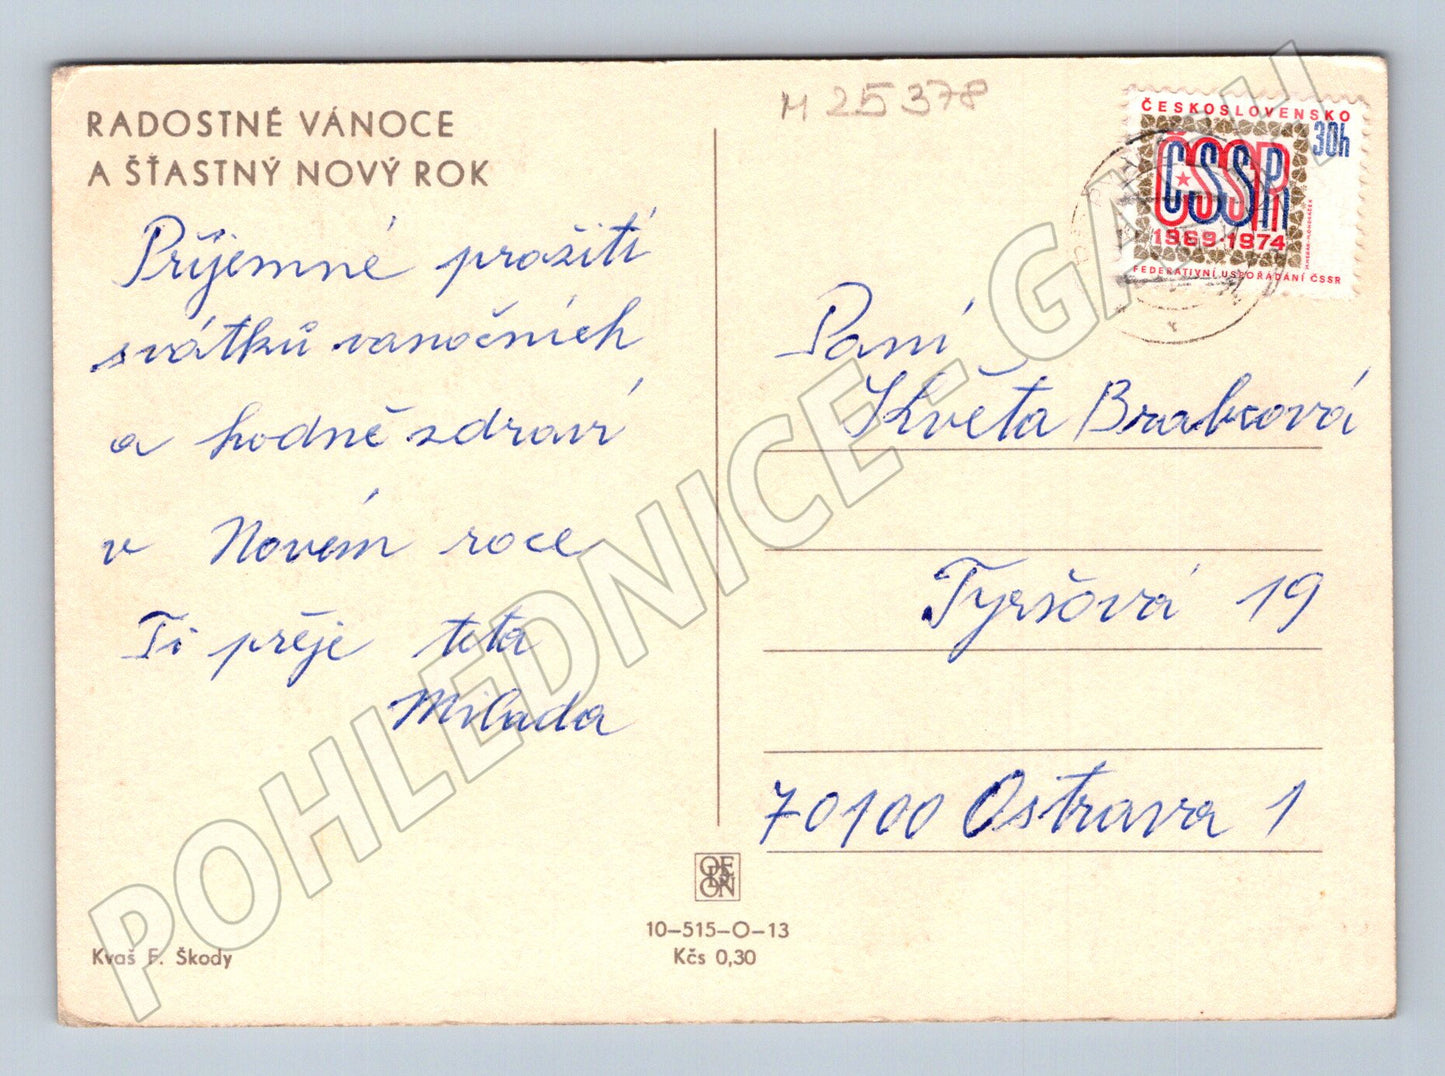 RADOSTNÉ VÁNOCE
A ŠŤASTNÝ NOVÝ ROK
Příjemné prožití
svátků vanočních
a hodně zdraví
v Novém roce
Ti přěje teta
Milada
Kvaš F. Škody
M 25378
ČESKOSLOVENSKO
30h
ČSSR
1969·1974
FEDERATIVNÍ USPOŘÁDÁNÍ ČSSR
Paní
Květa Brabcová
Tyršová 19
70100 Ostrava 1
ODEON
10–515–O–13
Kčs 0,30
POHLEDNICE - GALI